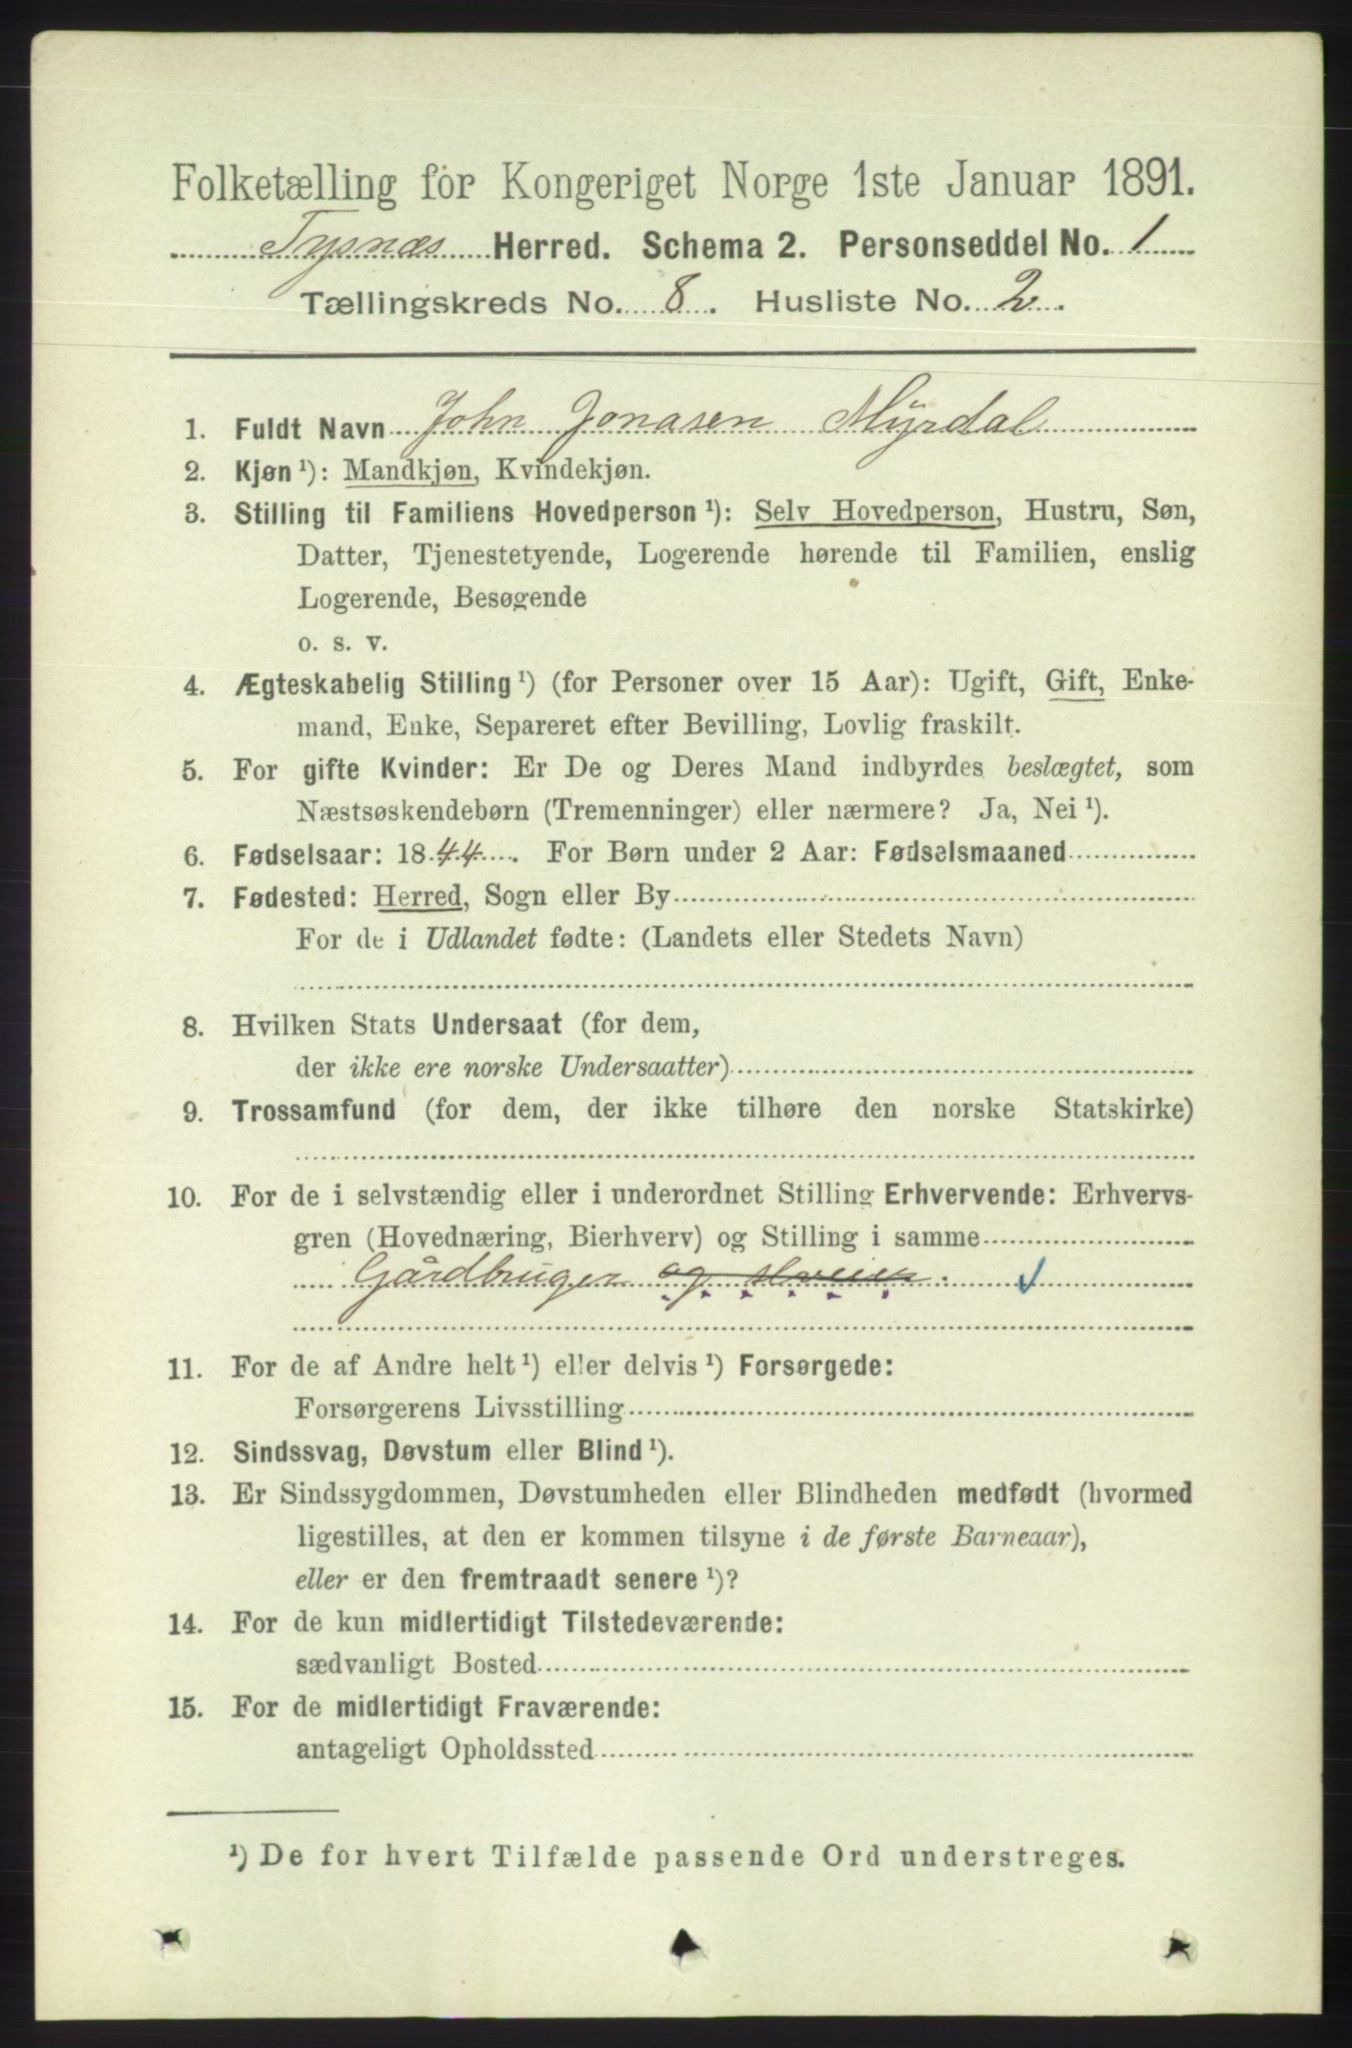 Folketælling for Kongeriget Norge 1ste Januar 1891.
Tysnæs Herred. Schema 2. Personseddel No. 1
Tællingskreds No. 8. Husliste No. 2.
1. Fuldt Navn John Jonasen Myrdal
2. Kjøn ¹): Mandkjøn, Kvindekjøn.
3. Stilling til Familiens Hovedperson ¹): Selv Hovedperson, Hustru, Søn,
Datter, Tjenestetyende, Logerende hørende til Familien, enslig
Logerende, Besøgende
o. s. v.
4. Ægteskabelig Stilling ¹) (for Personer over 15 Aar): Ugift, Gift, Enke-
mand, Enke, Separeret efter Bevilling, Lovlig fraskilt.
5. For gifte Kvinder: Er De og Deres Mand indbyrdes beslægtet, som
Næstsøskendebørn (Tremenninger) eller nærmere? Ja, Nei ¹).
6. Fødselsaar: 1844. For Børn under 2 Aar: Fødselsmaaned
7. Fødested: Herred, Sogn eller By
For de i Udlandet fødte: (Landets eller Stedets Navn)
8. Hvilken Stats Undersaat (for dem,
der ikke ere norske Undersaatter)
9. Trossamfund (for dem, der ikke tilhøre den norske Statskirke)
10. For de i selvstændig eller i underordnet Stilling Erhvervende: Erhvervs-
gren (Hovednæring, Bierhverv) og Stilling i samme
Gårdbruger og
11. For de af Andre helt ¹) eller delvis ¹) Forsørgede:
Forsørgerens Livsstilling
12. Sindssvag, Døvstum eller Blind ¹).
13. Er Sindssygdommen, Døvstumheden eller Blindheden medfødt (hvormed
ligestilles, at den er kommen tilsyne i de første Barneaar),
eller er den fremtraadt senere ¹)?
14. For de kun midlertidigt Tilstedeværende:
sædvanligt Bosted
15. For de midlertidigt Fraværende:
antageligt Opholdssted
¹) De for hvert Tilfælde passende Ord understreges.